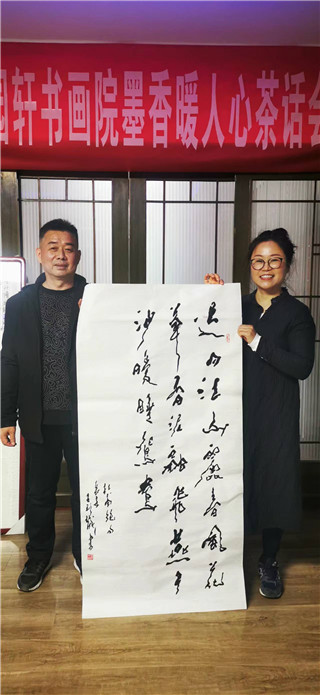 轩书画院墨香暖人心茶话会
迟日江山麗春風花
草香泥融飛燕子
沙暖睡鴛鴦
杜甫绝句